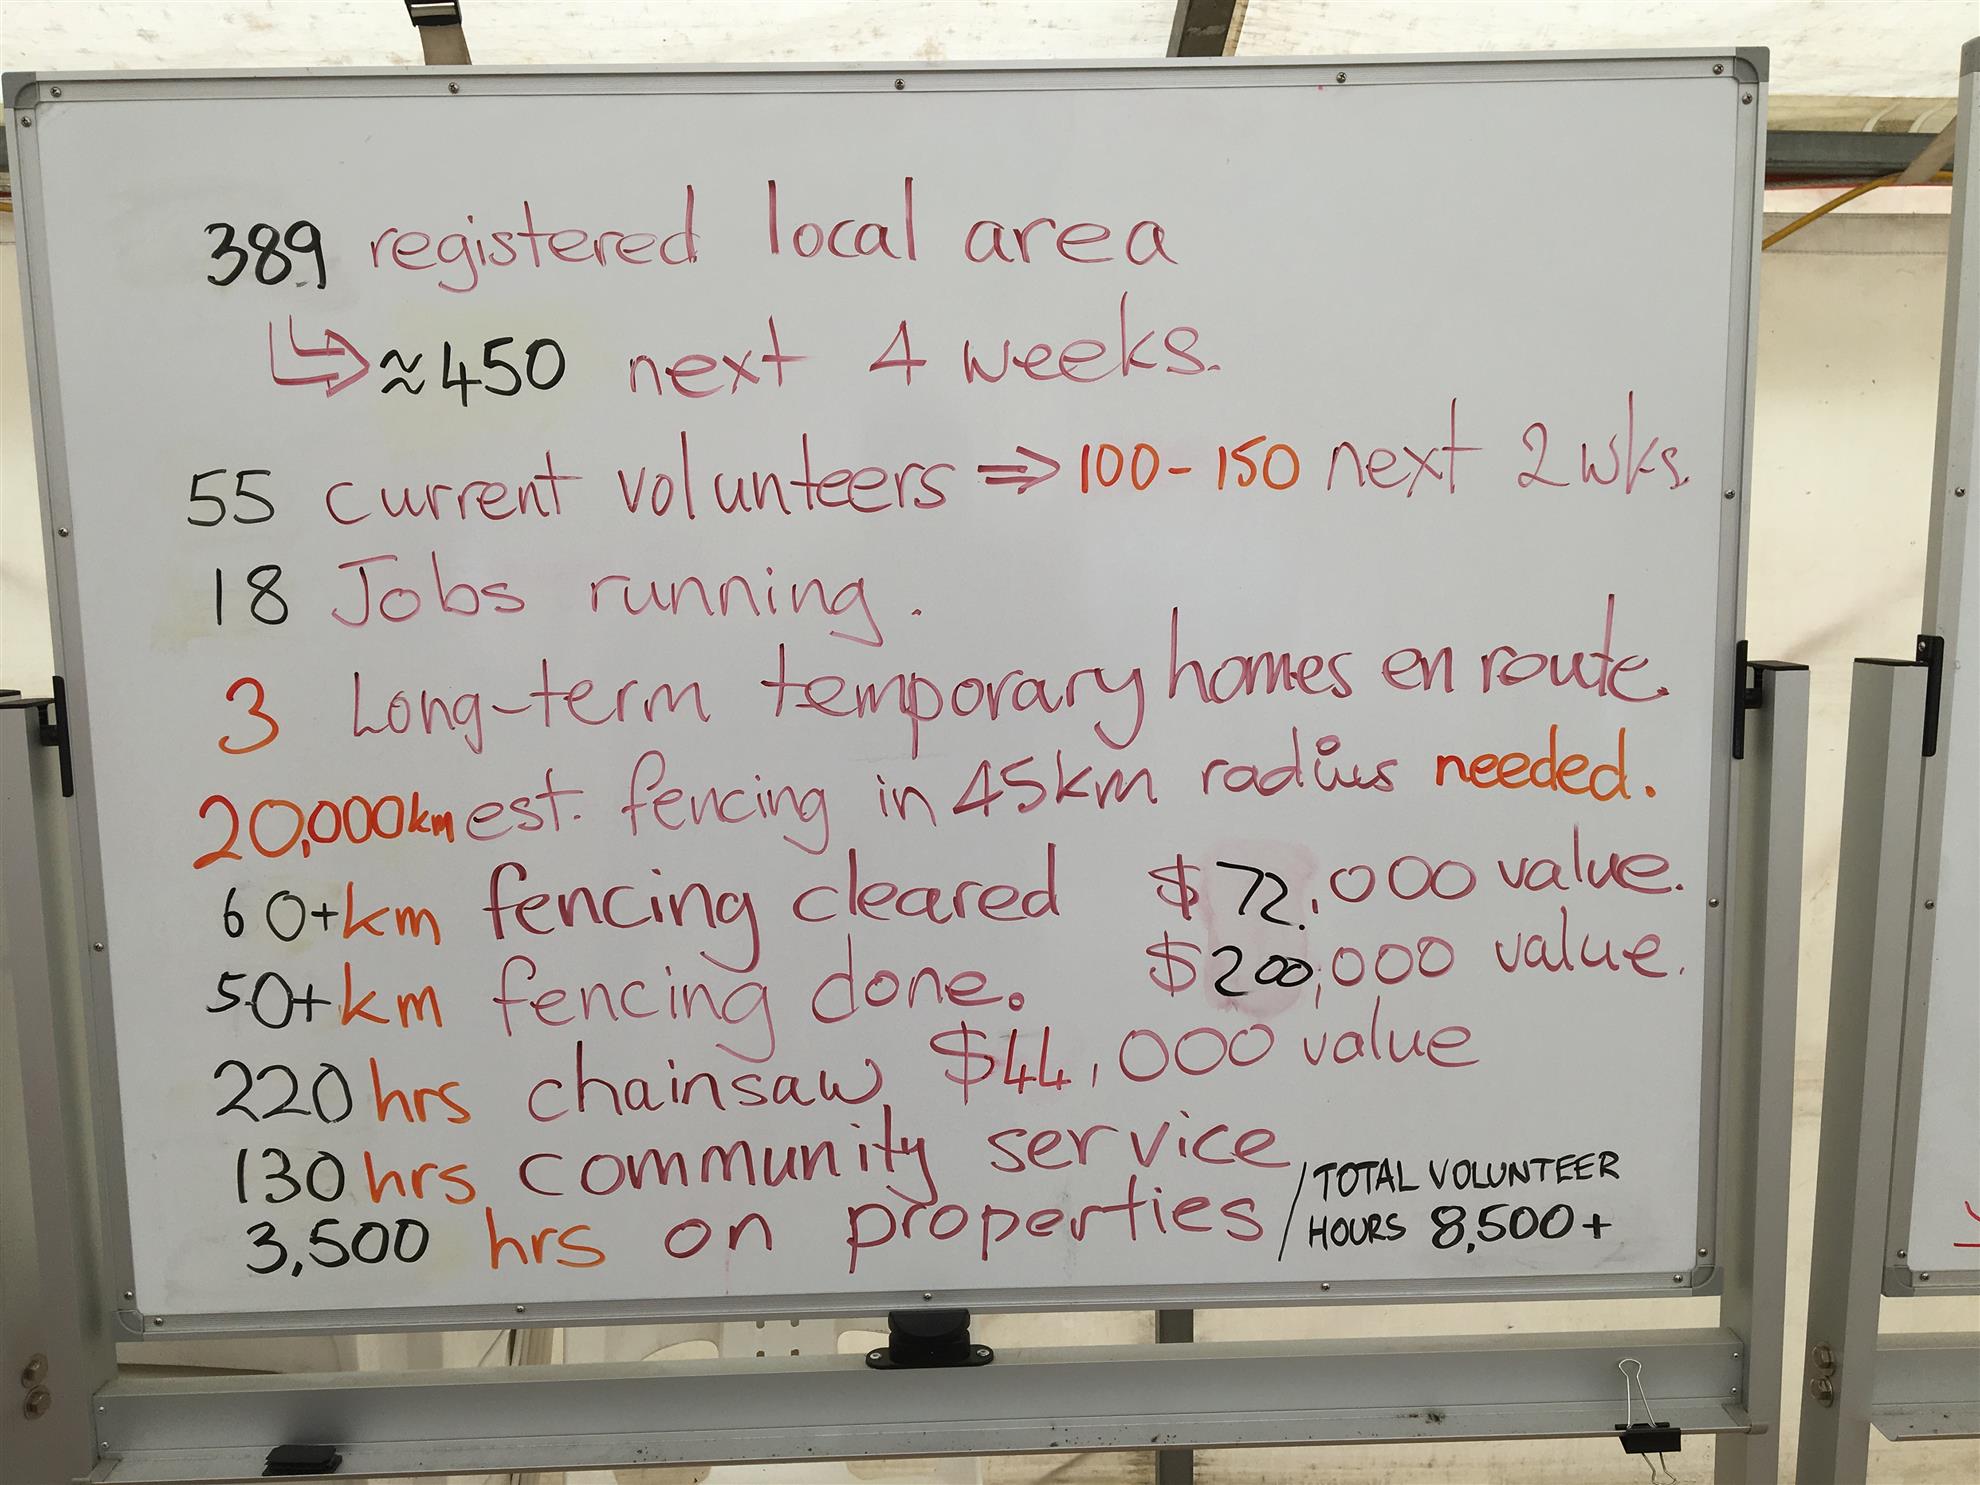 389 registered local area
≈450 next 4 weeks.
55 current volunteers ⇒ 100-150 next 2 wks.
18 Jobs running.
3 Long-term temporary homes en route.
20,000km est. fencing in 45km radius needed.
60+km fencing cleared $72,000 value.
50+km fencing done. $200,000 value.
220 hrs chainsaw $44,000 value
130 hrs community service
3,500 hrs on properties / TOTAL VOLUNTEER
HOURS 8,500+